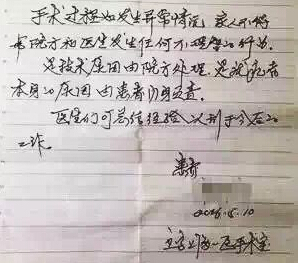 手术过程如发生异常情况，家人不得
与院方和医生发生任何不理智的行为。
是技术原因由院方处理，是我
本身的原因由患者自负责。
医生们可总结经验以利于今后的
工作。
患者
2016.5.10